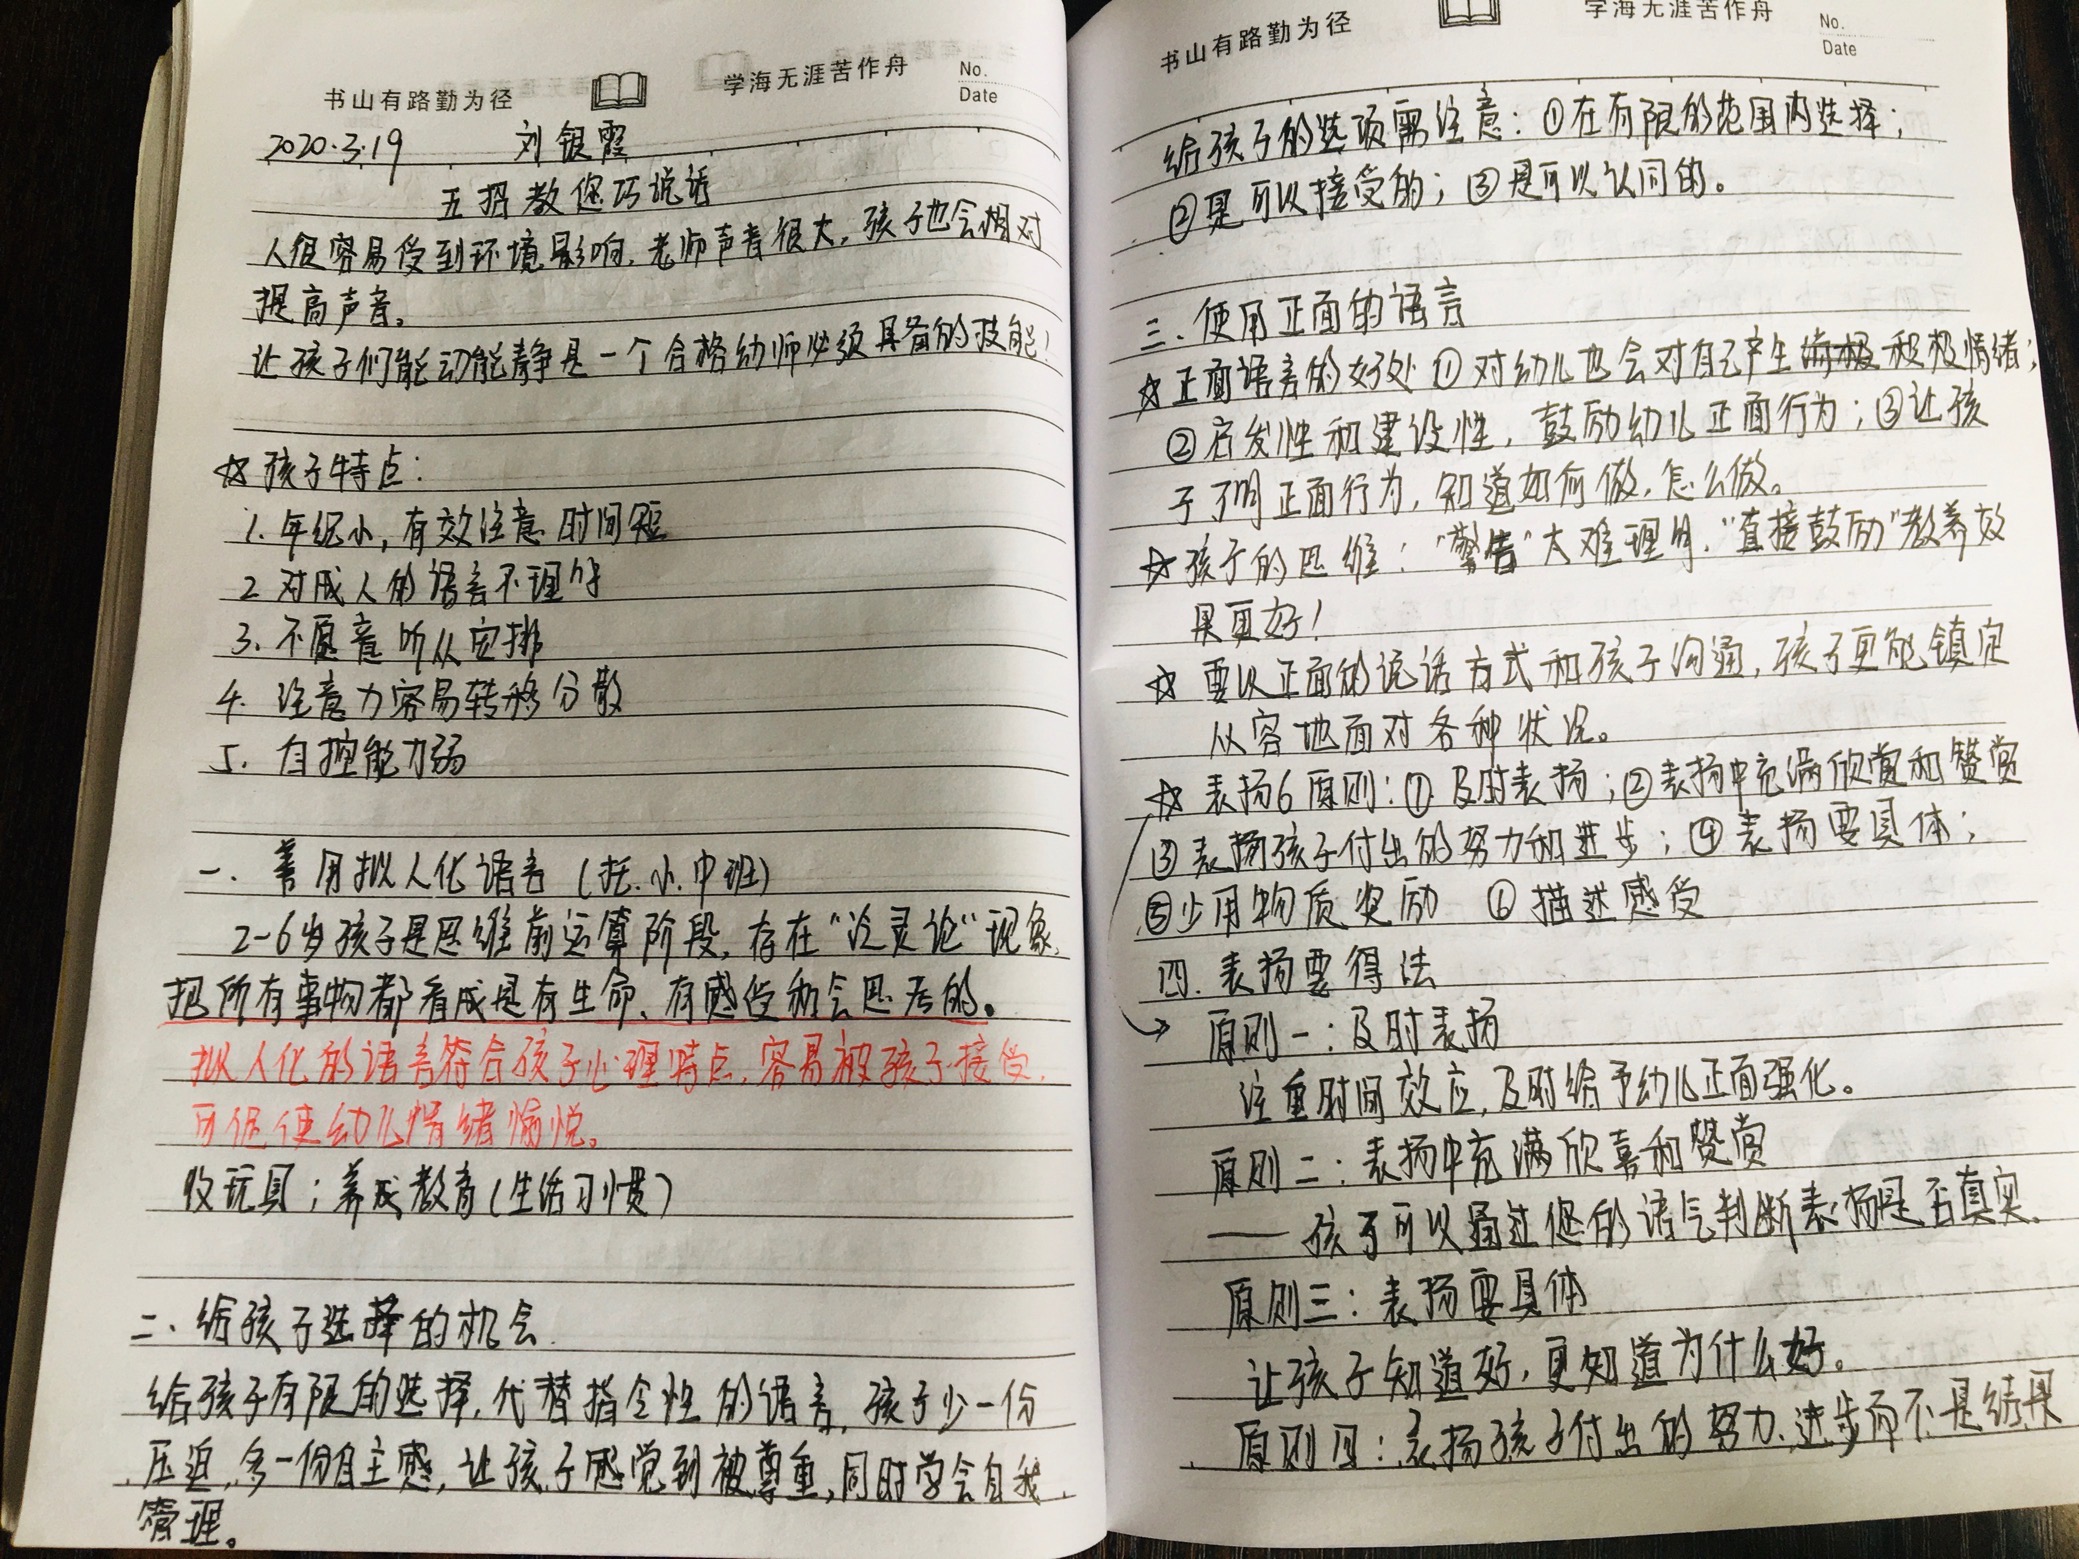 书山有路勤为径 学海无涯苦作舟 No.
Date
2020.3.19 刘银霞
五招教您巧说话
人很容易受到环境影响,老师声音很大,孩子也会相对
提高声音。
让孩子们能动能静是一个合格幼师必须具备的技能!
☆孩子特点:
1.年纪小,有效注意时间短
2 对成人的语言不理解
3.不愿意听从安排
4.注意力容易转移分散
5.自控能力弱
一.善用拟人化语言(托.小.中班)
2-6岁孩子是思维前运算阶段,存在“泛灵论”现象,
把所有事物都看成是有生命、有感受和会思考的。
拟人化的语言符合孩子心理特点,容易被孩子接受,
可促使幼儿情绪愉悦。
收玩具;养成教育(生活习惯)
二、给孩子选择的机会.
给孩子有限的选择,代替指令性的语言,孩子少一份
压迫,多一份自主感,让孩子感觉到被尊重,同时学会自我
管理。
书山有路勤为径 学海无涯苦作舟 No.
Date
给孩子的选项需注意:①在有限的范围内选择;
②是可以接受的;③是可以认同的。
三.使用正面的语言
☆正面语言的好处①对幼儿也会对自己产生积极情绪;
②启发性和建设性,鼓励幼儿正面行为;③让孩
子了明正面行为,知道如何做,怎么做。
☆孩子的思维:“警告”太难理解,“直接鼓励”教养效
果更好!
☆要以正面的说话方式和孩子沟通,孩子更能镇定
从容地面对各种状况。
☆表扬6原则:①及时表扬;②表扬中充满欣赏和赞赏
③表扬孩子付出的努力和进步;④表扬要具体;
⑤少用物质奖励 ⑥描述感受
四.表扬要得法
→原则一:及时表扬
注重时间效应,及时给予幼儿正面强化。
原则二:表扬中充满欣喜和赞赏
——孩子可以通过您的语气判断表扬是否真实.
原则三:表扬要具体
让孩子知道好,更知道为什么好。
原则四:表扬孩子付出的努力、进步而不是结果